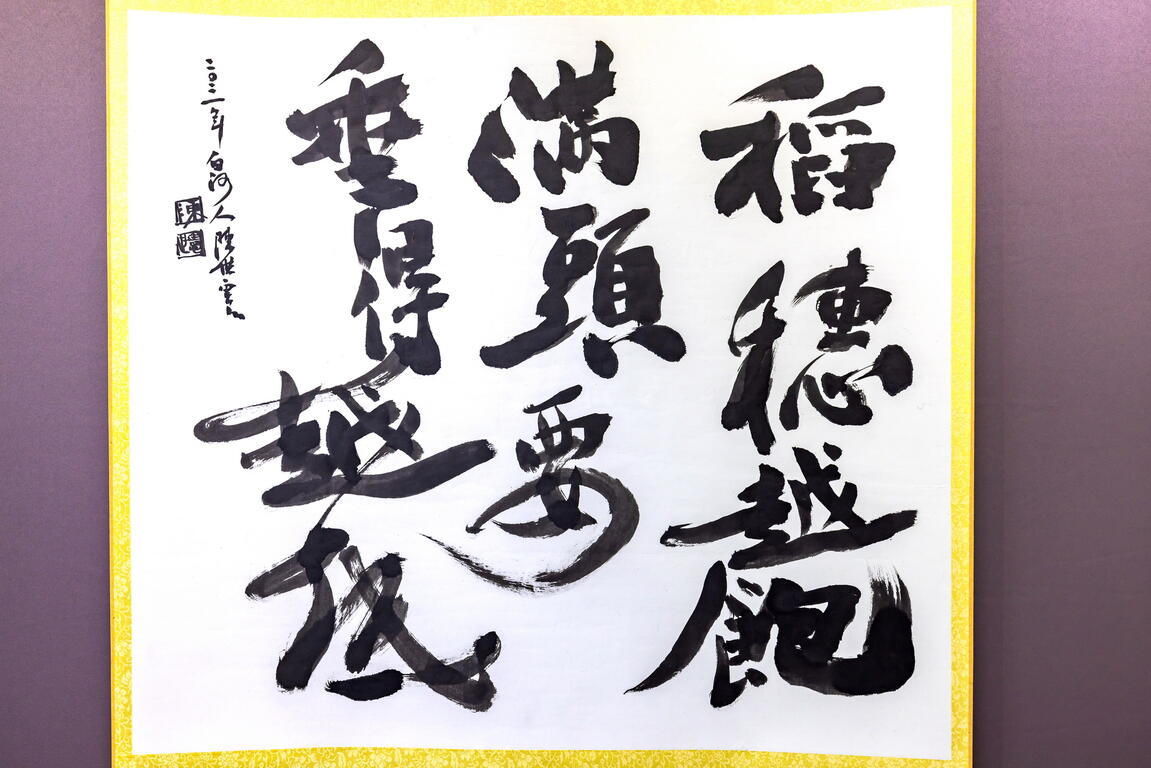 稻穗越飽
滿頭要
垂得越低
二〇二一年白河人陳世雲